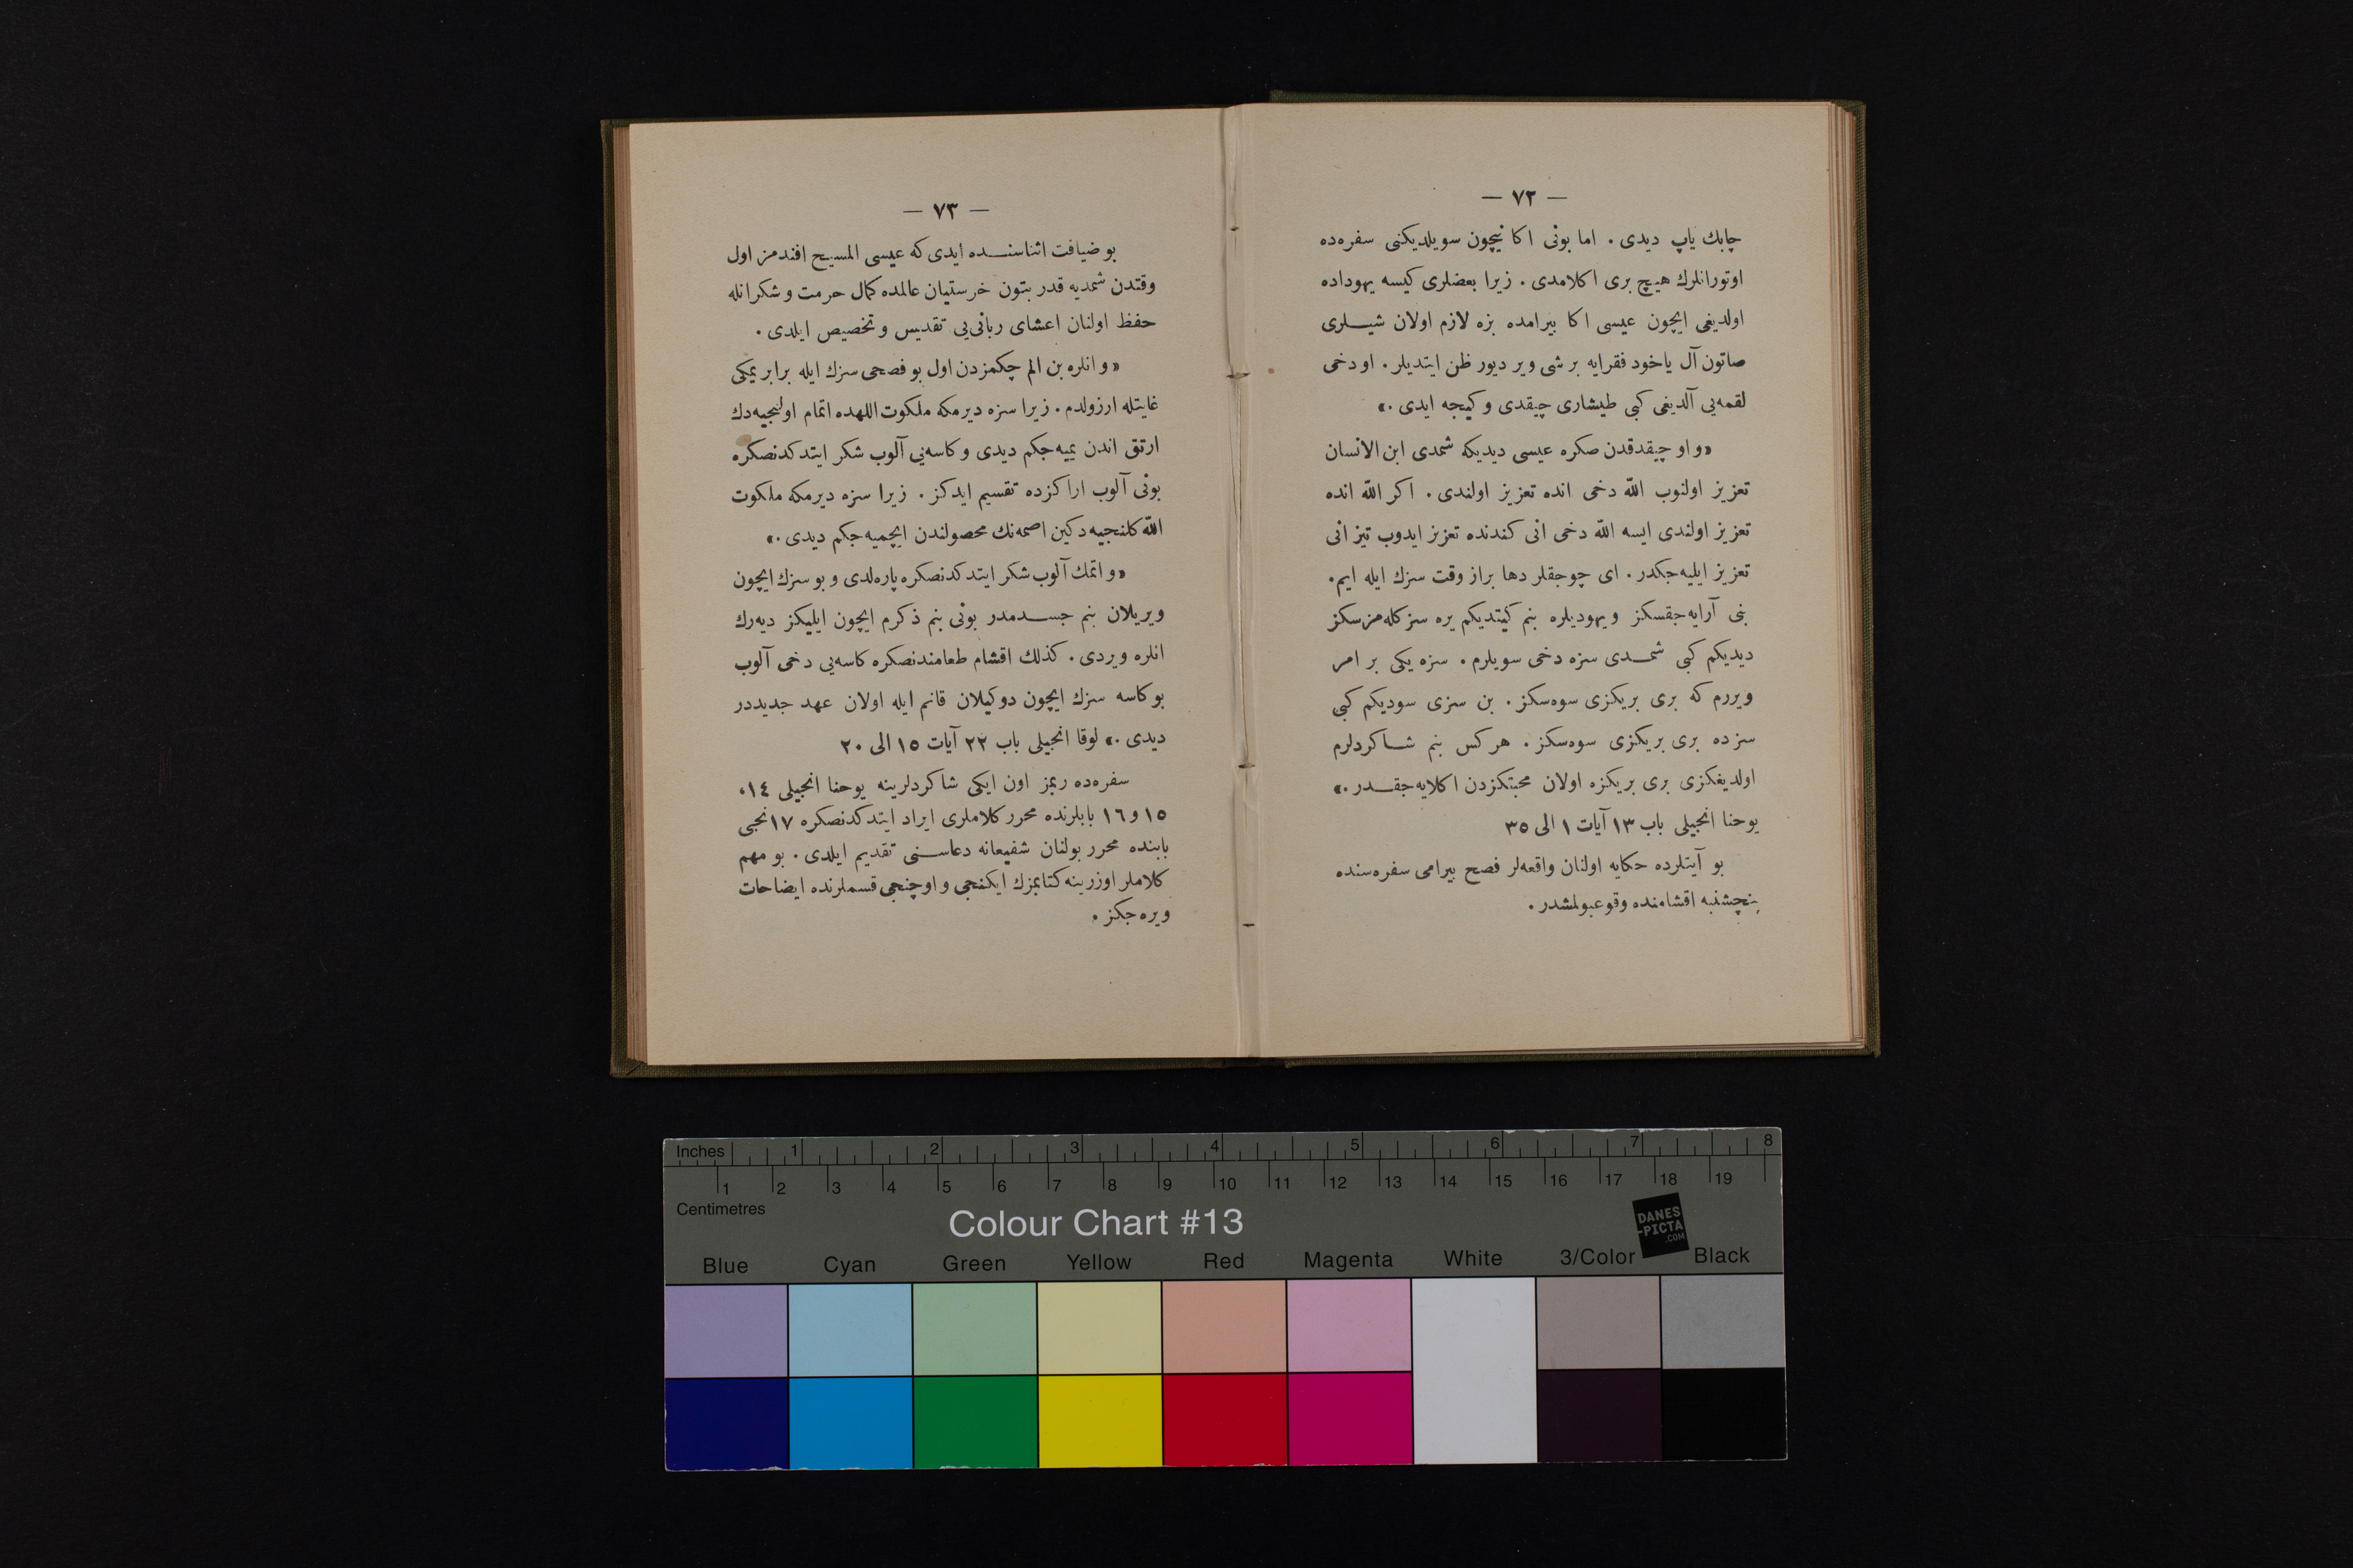 — ٧٢ —
چابك یاپ دیدی . اما بونی اكا نیچون سویلدیكنی سفره‌ده
اوتورانلرك هیچ بری اكلامدی . زیرا بعضلری كیسه یهوداده
اولدیغی ایچون عیسی اكا بیرامده بزه لازم اولان شیــلری
صاتون آل یاخود فقرایه بر شی ویر دیور ظن ایتدیلر . او دخی
لقمه‌یی آلدیغی كبی طیشاری چیقدی و كیجه ایدی .»
«و او چیقدقدن صكره عیسی دیدیكه شمدی ابن الانسان
تعزیز اولنوب اللّه دخی انده تعزیز اولندی . اكر اللّه انده
تعزیز اولندی ایسه اللّه دخی انی كندنده تعزیز ایدوب تیز انی
تعزیز ایلیه‌جكدر . ای چوجقلر دها براز وقت سزك ایله ایم .
بنی آرایه‌جقسكز و یهودیلره بنم كیتدیكم یره سز كله‌مز سكز
دیدیكم كبی شمــدی سزه دخی سویلرم . سزه یكی بر امر
ویررم كه بری بریكزی سوه‌سكز . بن سزی سودیكم كبی
سز ده بری بریكزی سوه‌سكز . هر كس بنم شــاكردلرم
اولدیغكزی بری بریكزه اولان محبتكزدن اكلایه‌جقــدر .»
یوحنا انجیلی باب ١٣ آیات ١ الی ٣٥
بو آیتلرده حكایه اولنان واقعه‌لر فصح بیرامی سفره‌سنده
پنچشنبه اقشامنده وقوعبولمشدر .
— ٧٣ —
بو ضیافت اثناسنــده ایدی كه عیسی المسیح افندمز اول
وقتدن شمدیه قدر بتون خرستیان عالمده كمال حرمت و شكرانله
حفظ اولنان اعشای ربانی‌یی تقدیس و تخصیص ایلدی .
«و انلره بن الم چكمزدن اول بو فصحی سزك ایله برابر یمكی
غایتله ارزولدم . زیرا سزه دیرمكه ملكوت اللهده اتمام اولنجیه‌دك
ارتق اندن یمیه‌جكم دیدی و كاسه‌یی آلوب شكر ایتدكدنصكره
بونی آلوب اراكزده تقسیم ایدكز . زیرا سزه دیرمكه ملكوت
اللّه كلنجیه‌دكین اصمه‌نك محصولندن ایچمیه‌جكم دیدی .»
«و اتمك آلوب شكر ایتدكدنصكره پاره‌لدی و بو سزك ایچون
ویریلان بنم جســدمدر بونی بنم ذكرم ایچون ایلیكز دیه‌رك
انلره ویردی . كذلك اقشام طعامندنصكره كاسه‌یی دخی آلوب
بو كاسه سزك ایچون دوكیلان قانم ایله اولان عهد جدیددر
دیدی .» لوقا انجیلی باب ٢٢ آیات ١٥ الی ٢٠
سفره‌ده ربمز اون ایكی شاكردلرینه یوحنا انجیلی ١٤،
١٥ و ١٦ بابلرنده محرر كلاملری ایراد ایتدكدنصكره ١٧ نجی
بابنده محرر بولنان شفیعانه دعاســنی تقدیم ایلدی . بو مهم
كلاملر اوزرینه كتابمزك ایكنجی و اوچنجی قسملرنده ایضاحات
ویره‌جكز .
Inches 1 2 3 4 5 6 7 8
1 2 3 4 5 6 7 8 9 10 11 12 13 14 15 16 17 18 19
Centimetres
Colour Chart #13
DANES
-PICTA
.COM
Blue Cyan Green Yellow Red Magenta White 3/Color Black